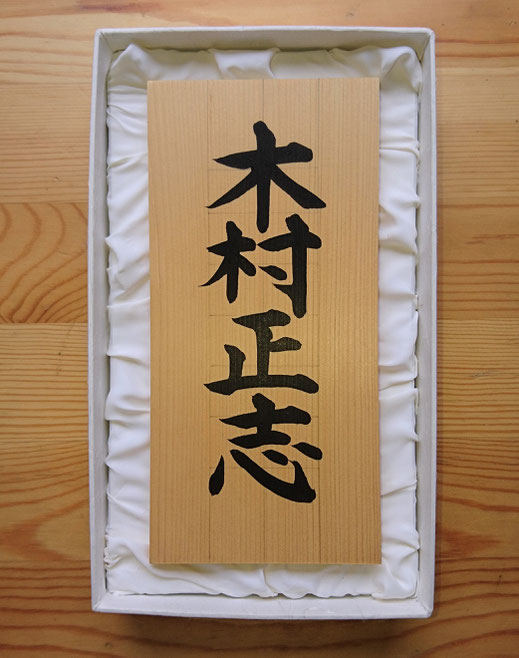 木村正志